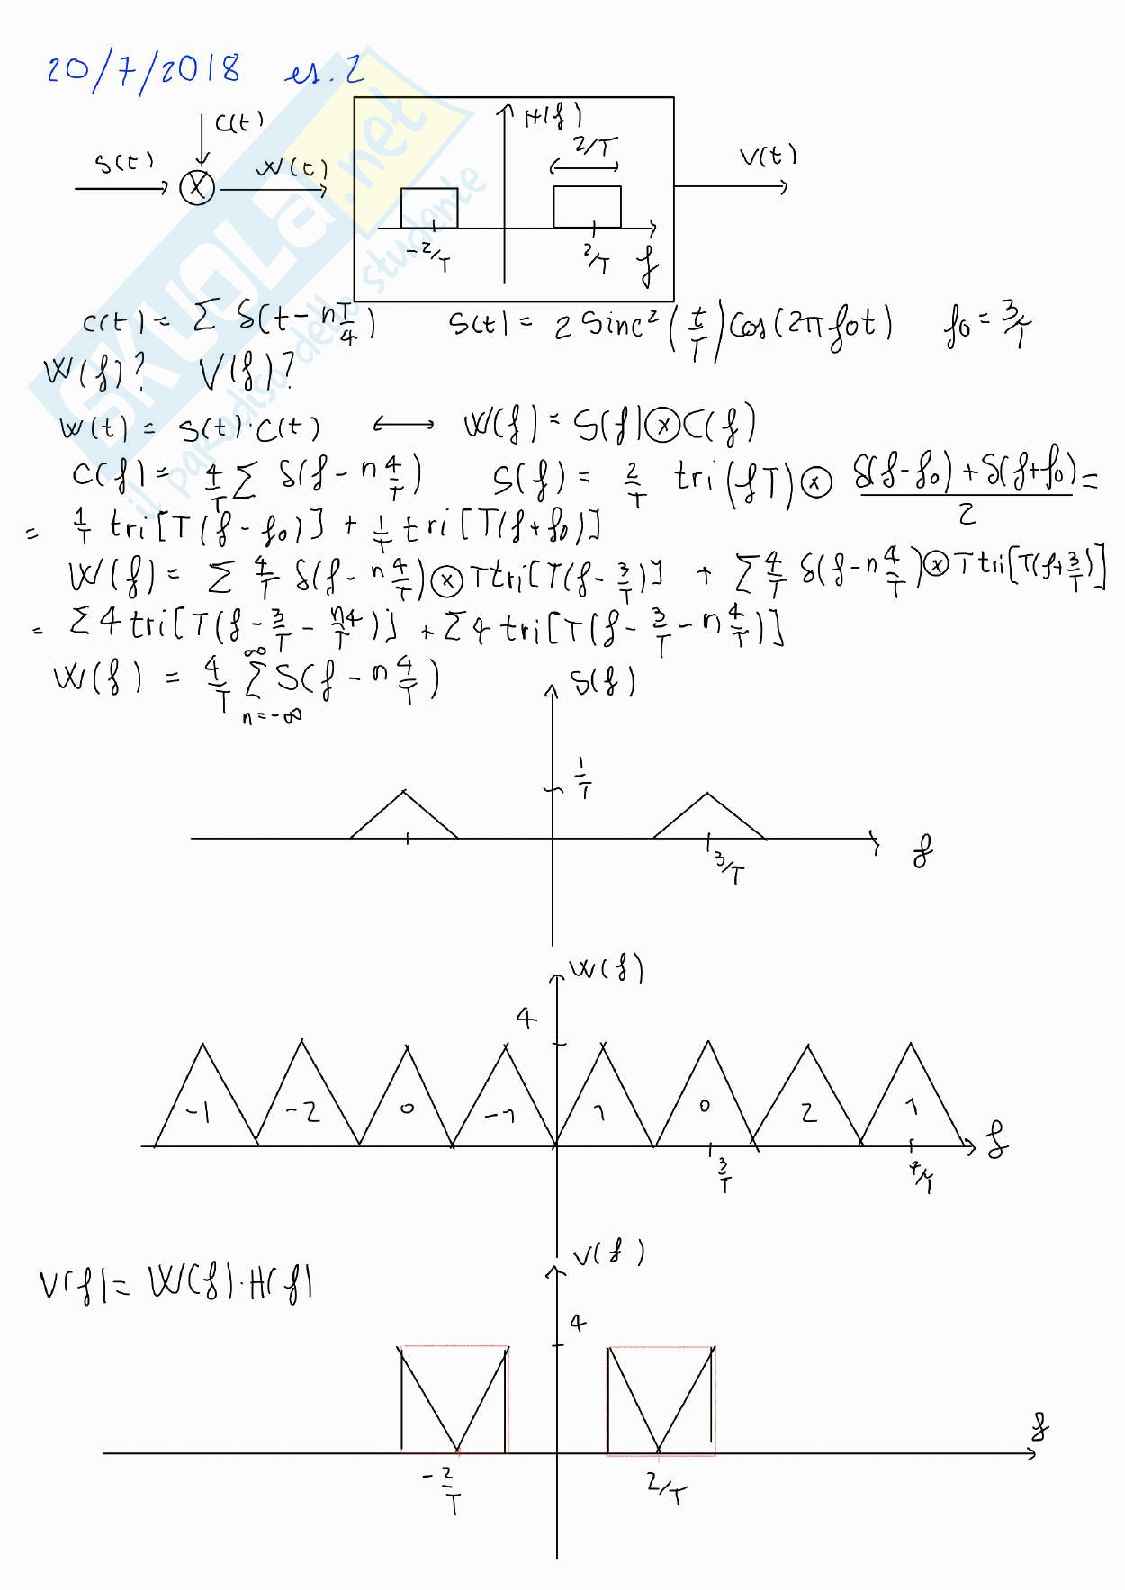 20/7/2018 es. 2
c(t)
H(f)
2/T
s(t) W(t) V(t)
-2/T 2/T f
c(t) = Σ δ(t - n T/4) s(t) = 2 sinc² (t/T) cos(2π f0 t) f0 = 3/T
W(f)? V(f)?
W(t) = s(t) · c(t) ⟷ W(f) = S(f) ⊗ C(f)
C(f) = 4/T Σ δ(f - n 4/T) S(f) = 2/T tri(fT) ⊗ (δ(f-f0) + δ(f+f0))/2 =
= 1/T tri[T(f - f0)] + 1/T tri[T(f + f0)]
W(f) = Σ 4/T δ(f - n 4/T) ⊗ T tri[T(f - 3/T)] + Σ 4/T δ(f - n 4/T) ⊗ T tri[T(f + 3/T)]
= Σ 4 tri[T(f - 3/T - n4/T)] + Σ 4 tri[T(f - 3/T - n 4/T)]
W(f) = 4/T Σ n=-∞ ∞ S(f - n 4/T)
S(f)
1/T
3/T f
W(f)
4
-1 -2 0 -1 1 0 2 1
f
3/T
V(f)
V(f) = W(f) · H(f)
4
f
-2/T 2/T
il paradiso dello studente
SKUOLA.net